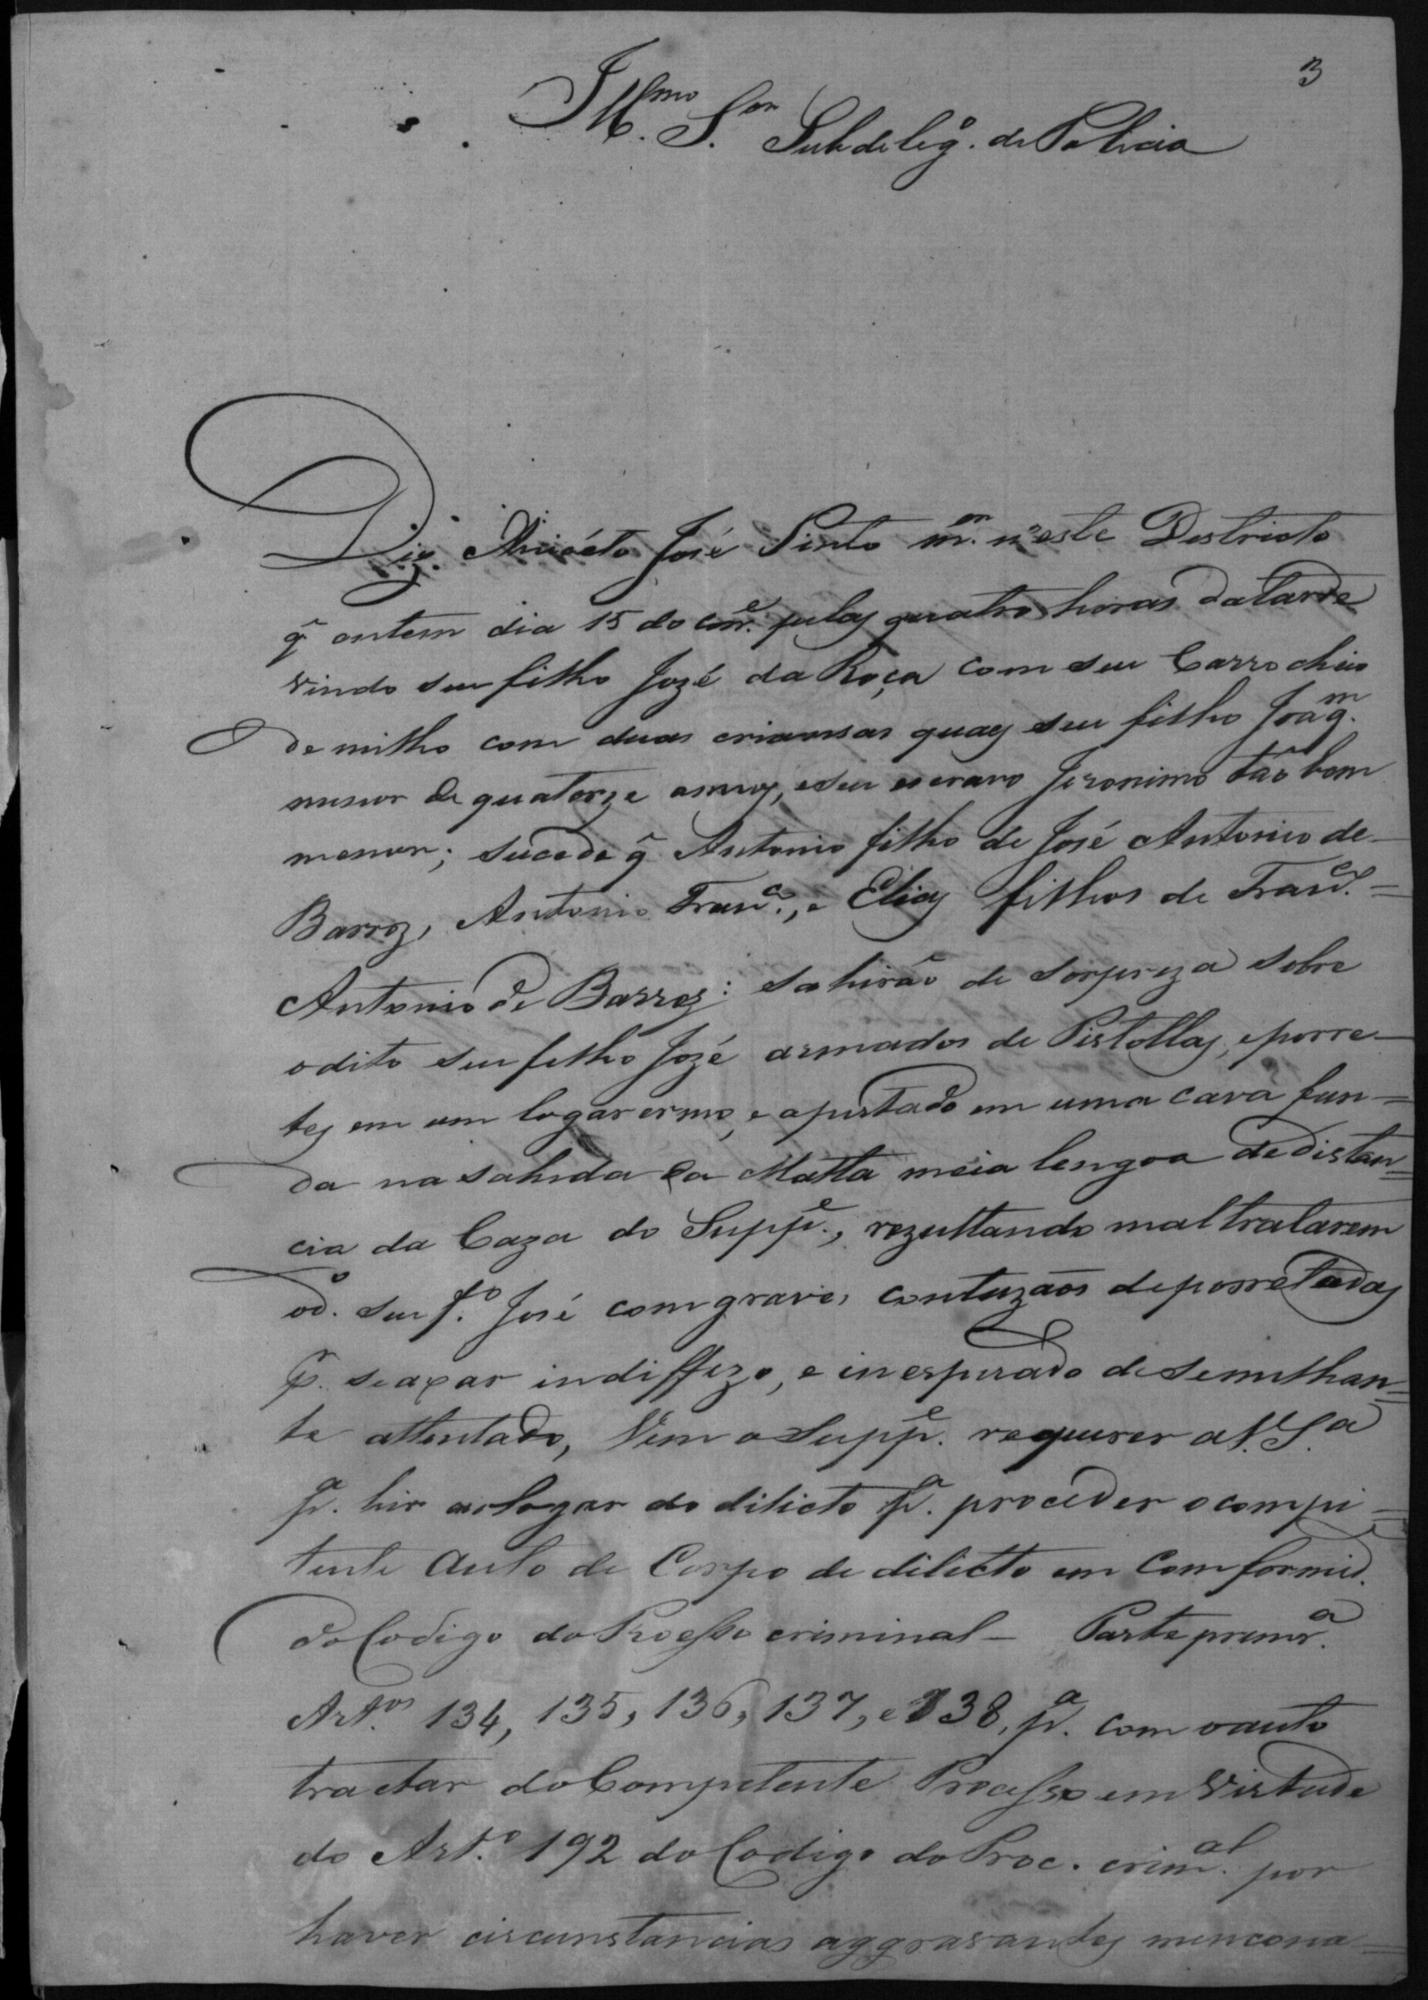 3
Illmo. Sor. Subdelego. de Policia
Diz Anicéto José Pinto mor. n'este Destricto
q̃ ontem dia 15 do corre. pelas quatro horas da tarde
vindo seu filho Jozé da Roça com seu Carro cheio
de milho com duas criansas quaes seu filho Joaqm.
menor de quatorze annos, e seu escravo Jeronimo tão bem
menor; sucede q̃ Antonio filho de José Antonio de
Barroz, Antonio Franco., e Elias filhos de Franco. =
Antonio de Barros: sahirão de sorpreza sobre
o dito seu filho Jozé armados de Pistollas, e porre-
tes em um logar ermo, e apertado em uma cava fun=
da na sahida da Matta meia lengoa de distan=
cia da Caza do Suppe., rezultando maltratarem
o do. seu fo. José com graves contuzãos de porretadas
pr. se axar indiffezo, e inesperado de semilhan=
te attentado, Vem o Suppe. requerer a V. Sa.
pa. hir ao logar do dilicto pa. proceder o compi=
tente Auto de Corpo de dilicto em Comformid.
do Codigo do Processo criminal - Parte primra.
Artos. 134, 135, 136, 137, e 138, pa. com o auto
tractar do Competente Processo em Virtude
do Arto. 192 do Codigo do Proc. crimal. por
haver circunstancias aggravantes menciona=